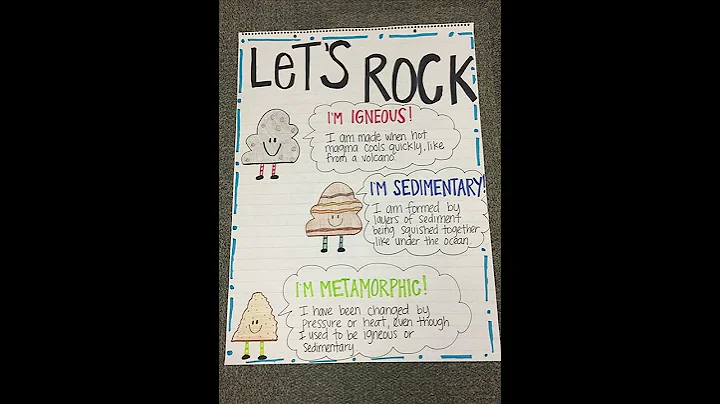 LeT'S ROCK
I'M IGNEOUS!
I am made when hot
magma cools quickly, like
from a volcano.
I'M SEDIMENTARY!
I am formed by
layers of sediment
being squished together
like under the ocean.
I'M METAMORPHIC!
I have been changed by
pressure or heat, even though
I used to be igneous or
sedimentary.